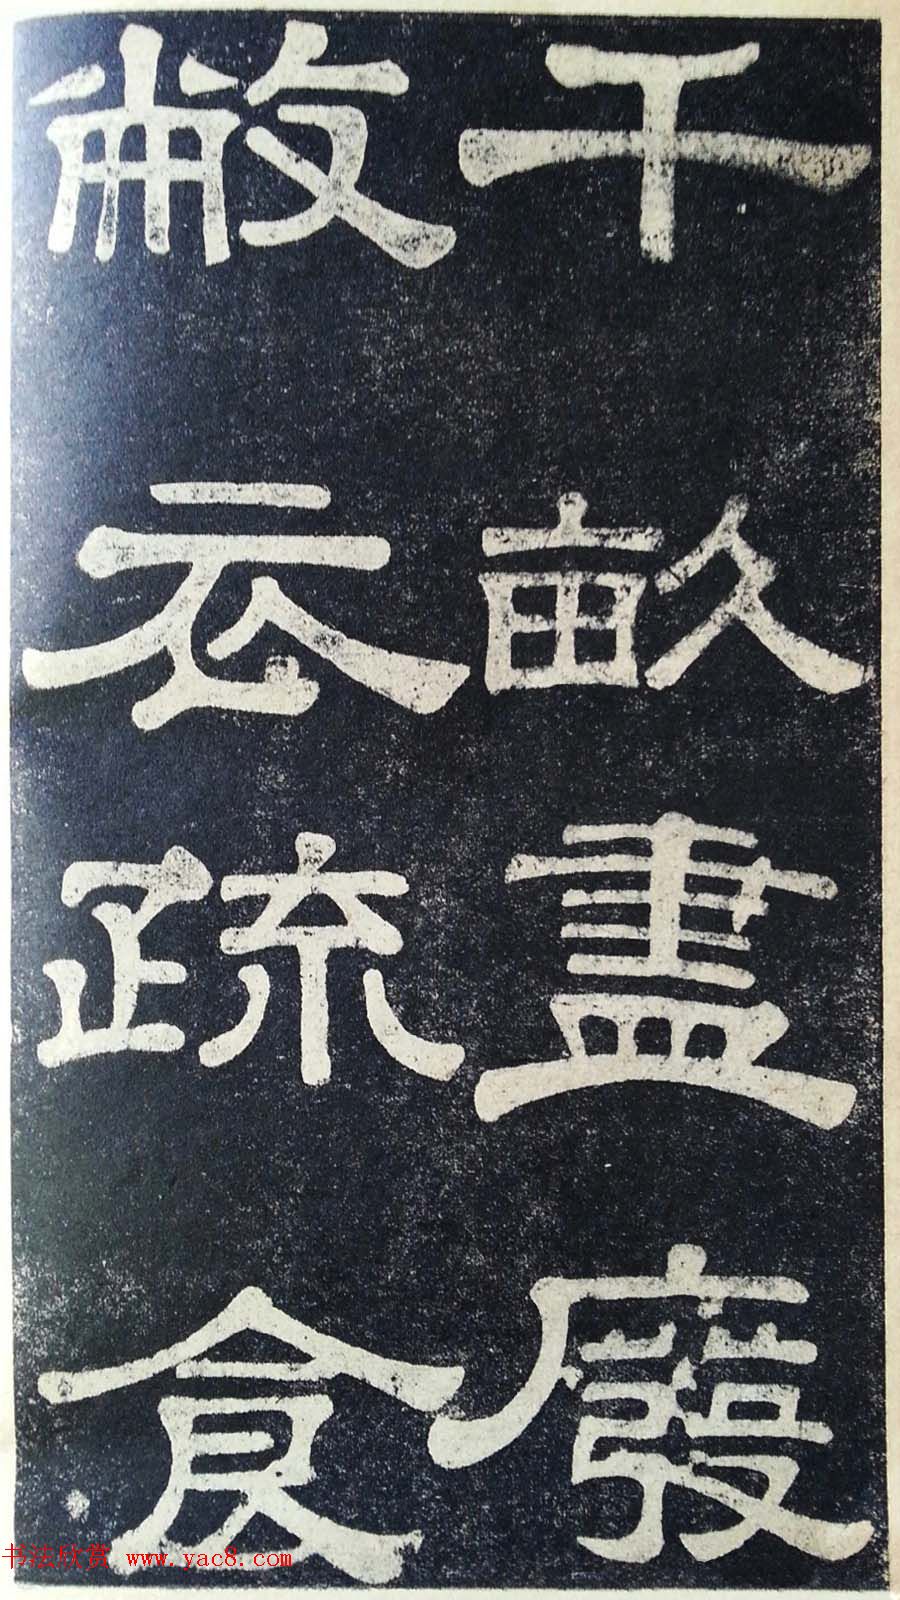 千畝盡廢
敝云疏食
书法欣赏 www.yac8.com